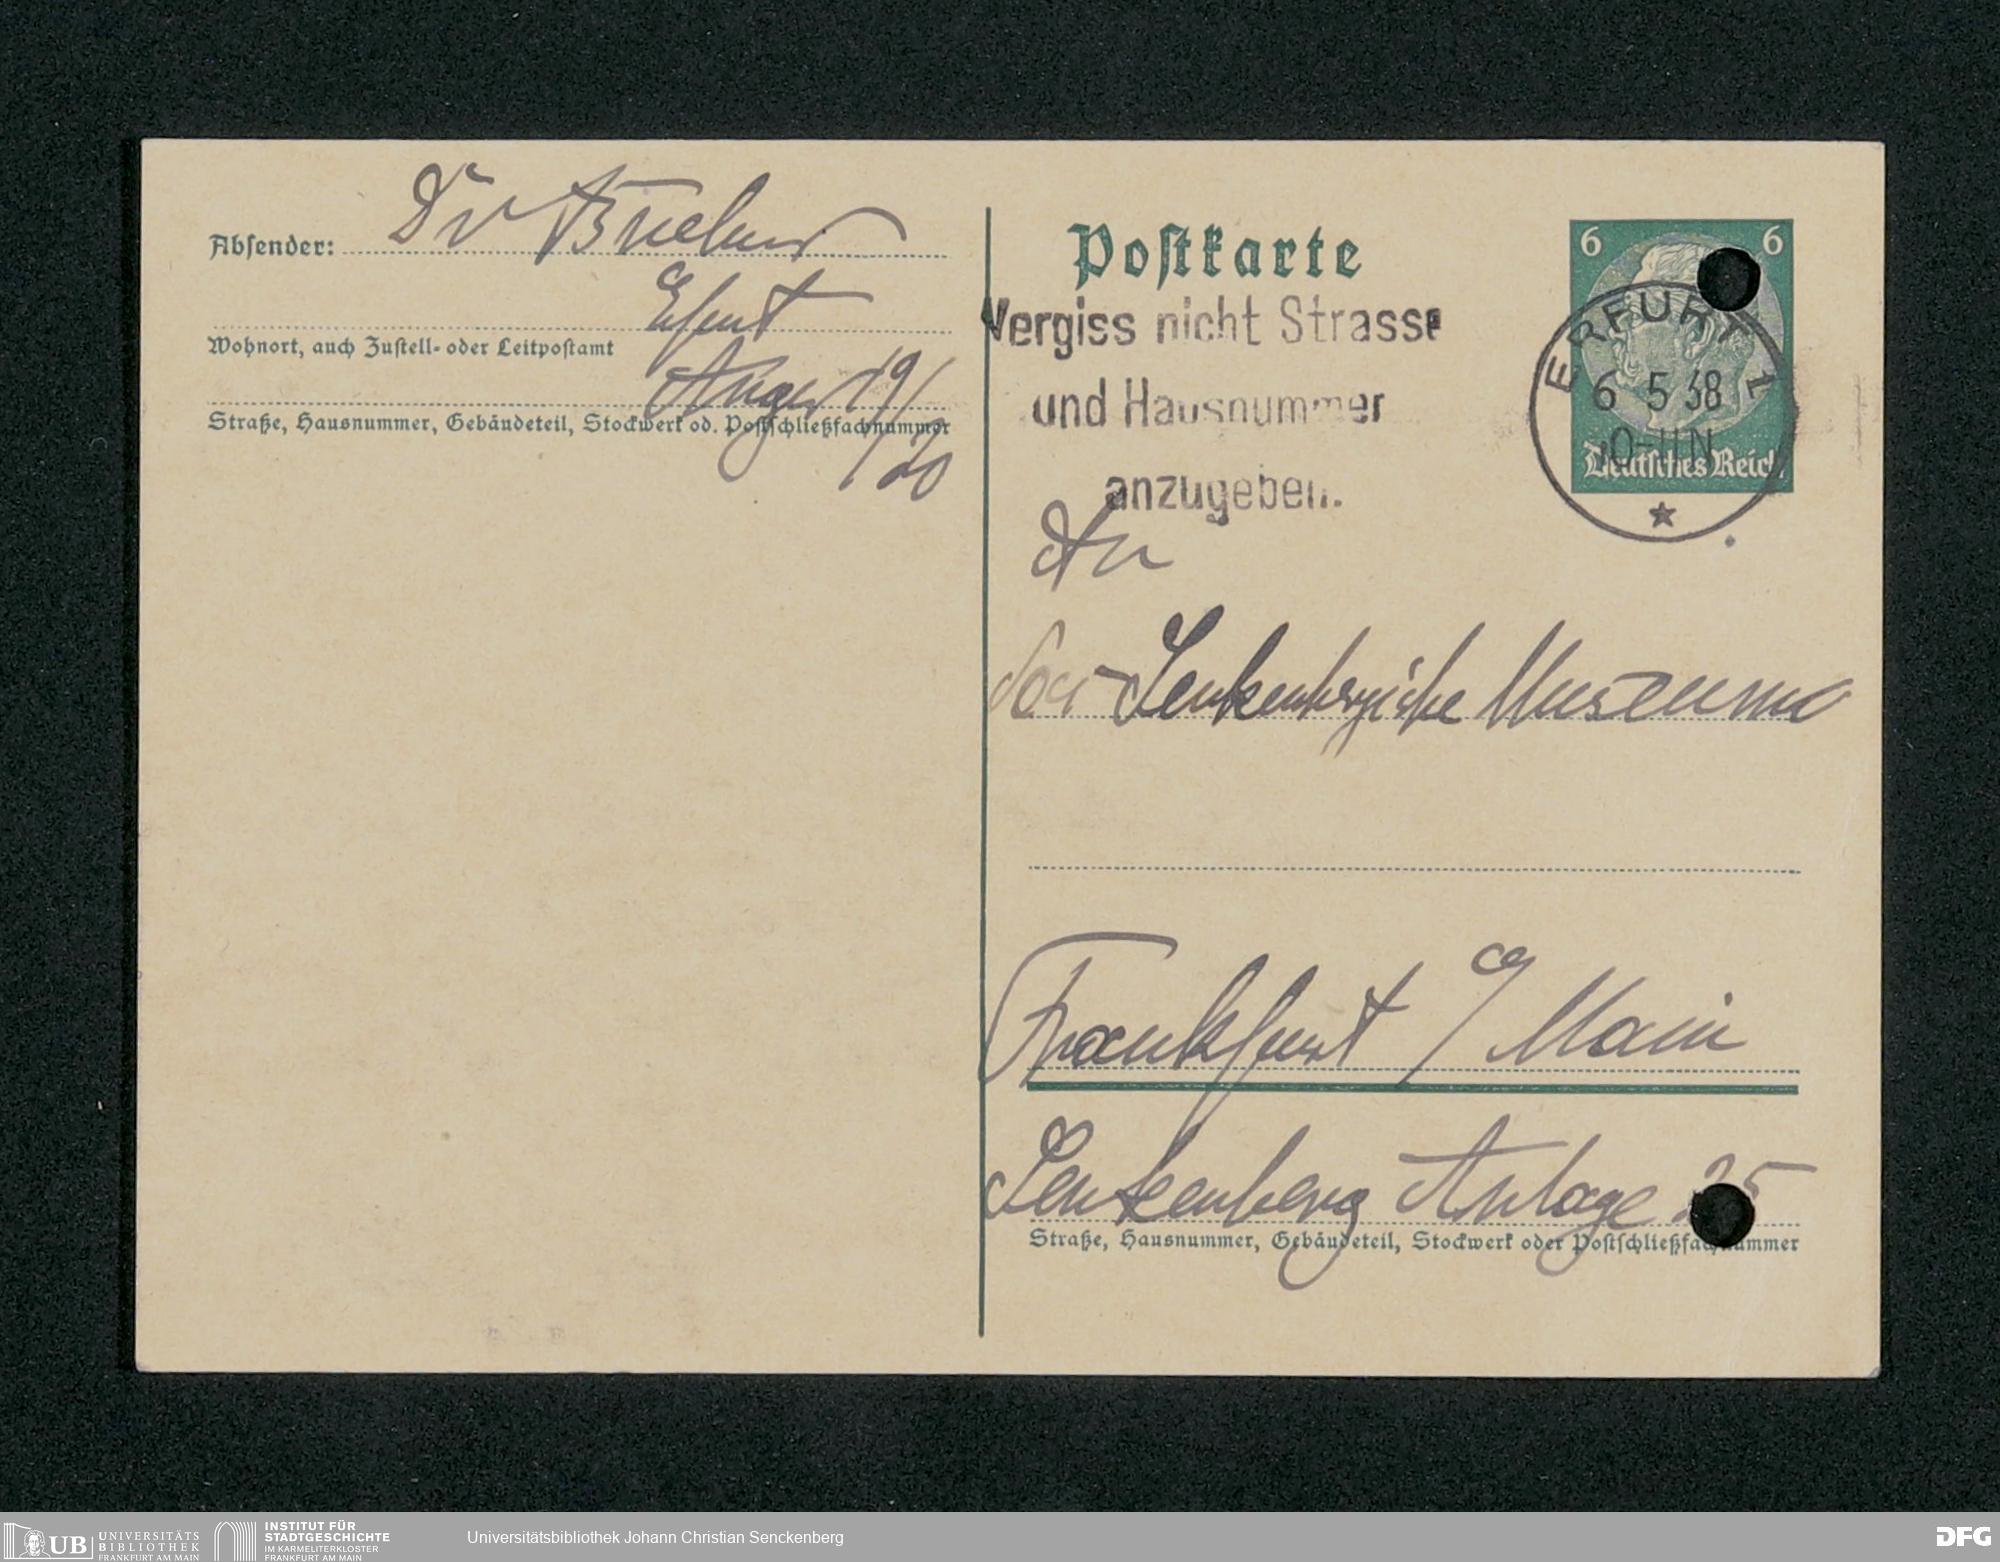 Absender: Dr
Erfurt
Wohnort, auch Zustell- oder Leitpostamt
Anger 19/
20
Straße, Hausnummer, Gebäudeteil, Stockwerk od. Postschließfachnummer
Postkarte
Vergiss nicht Strasse
und Hausnummer
anzugeben.
6 6
ERFURT 1
6 5 38
10-11N
Deutsches Reich
An
das Senkenbergische Museum
Frankfurt a/Main
Senkenberg Anlage 25
Straße, Hausnummer, Gebäudeteil, Stockwerk oder Postschließfachnummer
UB UNIVERSITÄTS
BIBLIOTHEK
FRANKFURT AM MAIN
INSTITUT FÜR
STADTGESCHICHTE
IM KARMELITERKLOSTER
FRANKFURT AM MAIN
Universitätsbibliothek Johann Christian Senckenberg
DFG